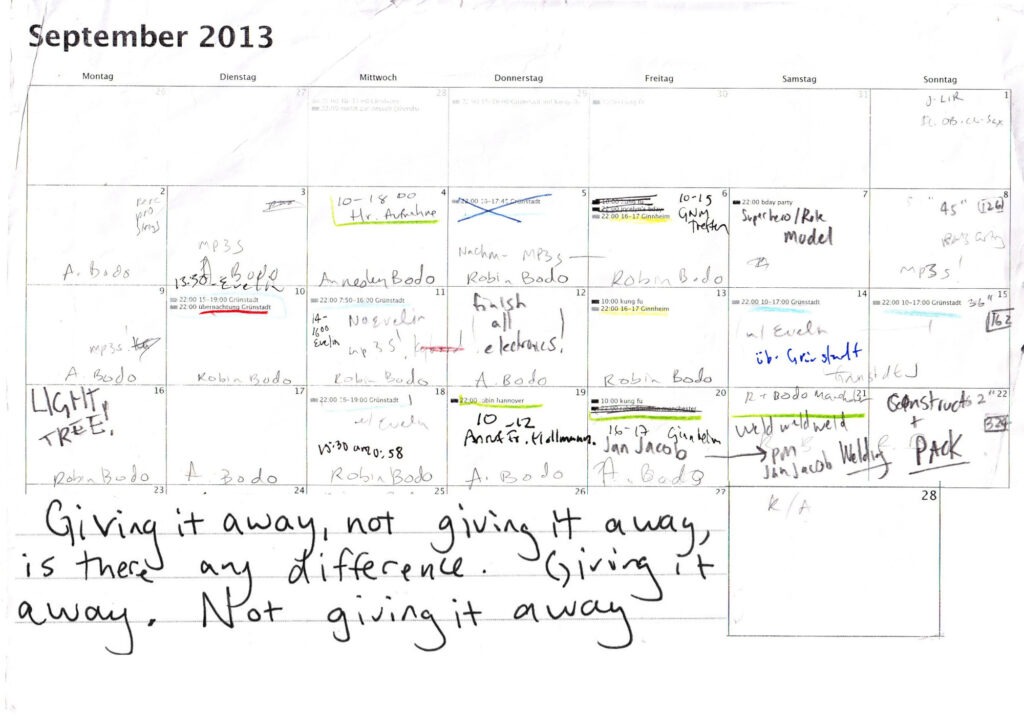 September 2013
Montag Dienstag Mittwoch Donnerstag Freitag Samstag Sonntag
26 27 28 29 30 31 1
2 3 4 5 6 7 8
10-18 00
Hr. Aufnahme
22:00 10-17:45 Grünstadt
10:00 kung fu
22:00 16-17 Ginnheim
10-15
GNM
Treffen
22:00 bday party
Superhero/Role
Model
45" 126
MP3s
Nachm- MP3s
MP3s!
A. Bodo
13:30-Evelin
Bodo
Annesley Bodo
Robin Bodo
Robin Bodo
9 10 11 12 13 14 15
22:00 15-19:00 Grünstadt
22:00 übernachtung Grünstadt
22:00 7:50-16:00 Grünstadt
14-
1600
Evelin
No Evelin
mp3s!
finish
all
electronics!
10:00 kung fu
22:00 16-17 Ginnheim
22:00 10-17:00 Grünstadt
w/ Evelin
üb. Grünstadt
22:00 10-17:00 Grünstadt
36"
162
mp3s
A. Bodo
Robin Bodo
Robin Bodo
A. Bodo
Robin Bodo
16 17 18 19 20 21 22
LIGHT!
TREE!
22:00 15-19:00 Grünstadt
w/ Evelin
22:00 robin hannover
10-12
10:00 kung fu
16-17 Ginnheim
Jan Jacob
R + Bodo
weld weld weld
pm
Jan Jacob Welding
Construct 2"
+
PACK
324
Robin Bodo
A. Bodo
Robin Bodo
A. Bodo
A. Bodo
23 24 25 26 27 28
R/A
Giving it away, not giving it away,
is there any difference. Giving it
away. Not giving it away